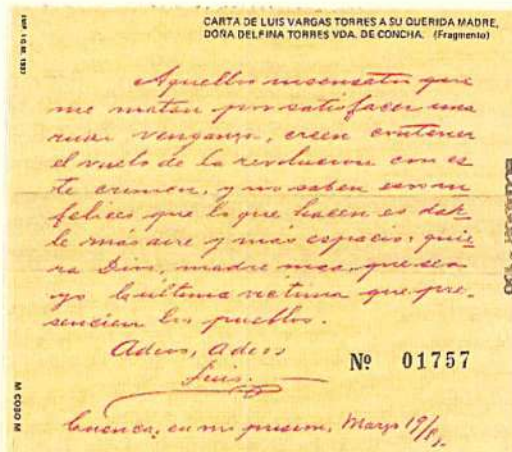 CARTA DE LUIS VARGAS TORRES A SU QUERIDA MADRE,
DOÑA DELFINA TORRES VDA. DE CONCHA. (Fragmento)
Aquellos insensatos que
me matan por satisfacer una
ruin venganza, creen contener
el vuelo de la revolucion con es
te crimen, y no saben esos in
felices que lo que hacen es dar
le más aire y más espacio; quie
ra Dios, madre mia, que sea
yo la última victima que pre-
sencien los pueblos.
Adios, Adios
Luis.
Nº 01757
Cuenca, en mi prision, Marzo 19/